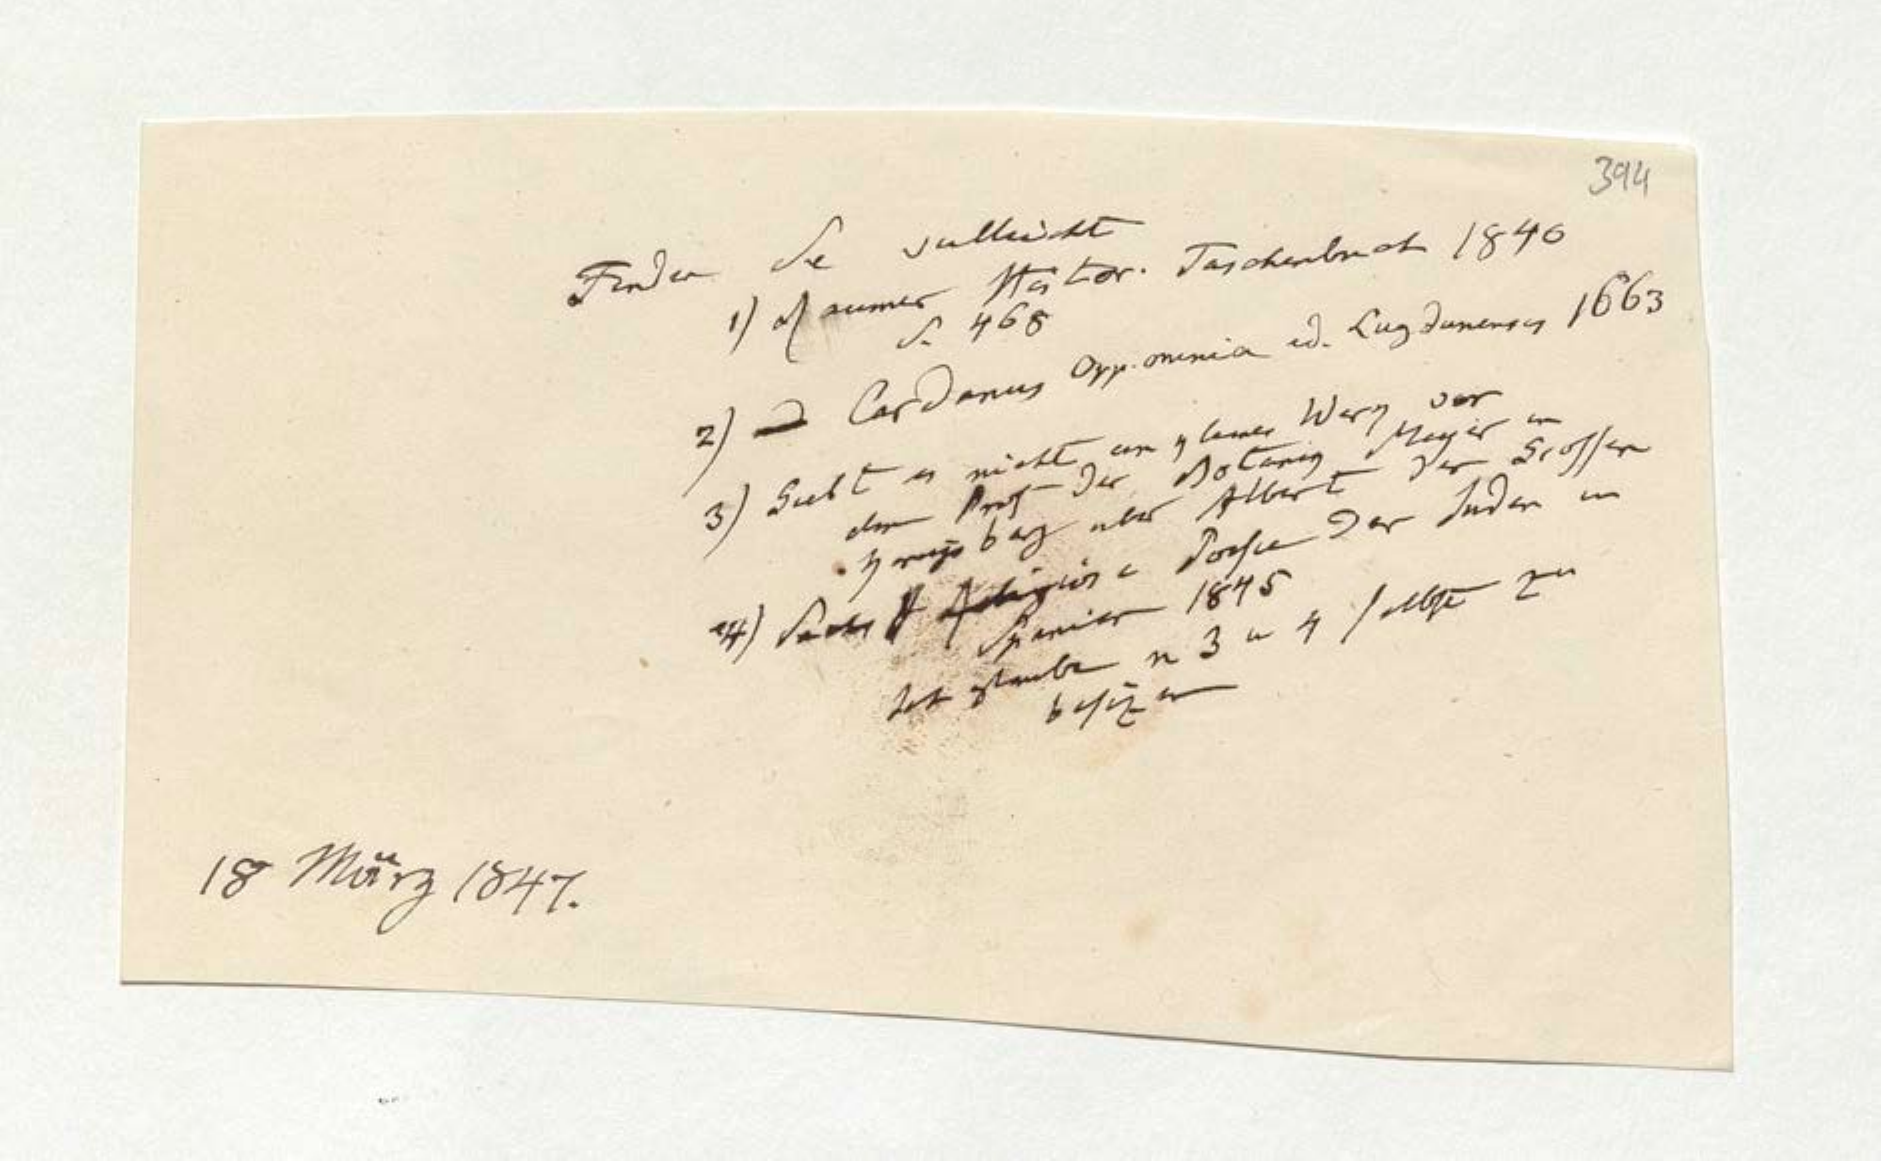 394
Finden Sie vielleicht
1) Raumer Histor. Taschenbuch 1840
S. 468
2) Cardanus Opp. omnia ed. Lugdunensis 1663
3) Giebt es nicht ein kleines Werk von
dem Prof der Botanik Meyer in
Königsberg über Albert den Grossen
4) Sachs Religiöse Poesie der Juden in
Spanien 1845
Ich glaube n 3 u 4 selbst zu
besizen
18 März 1847.